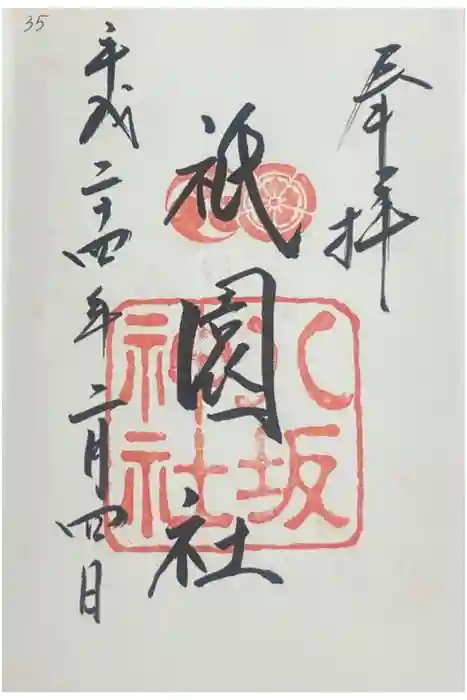 奉拝
祇園社
八坂神社
平成二十四年二月四日
35